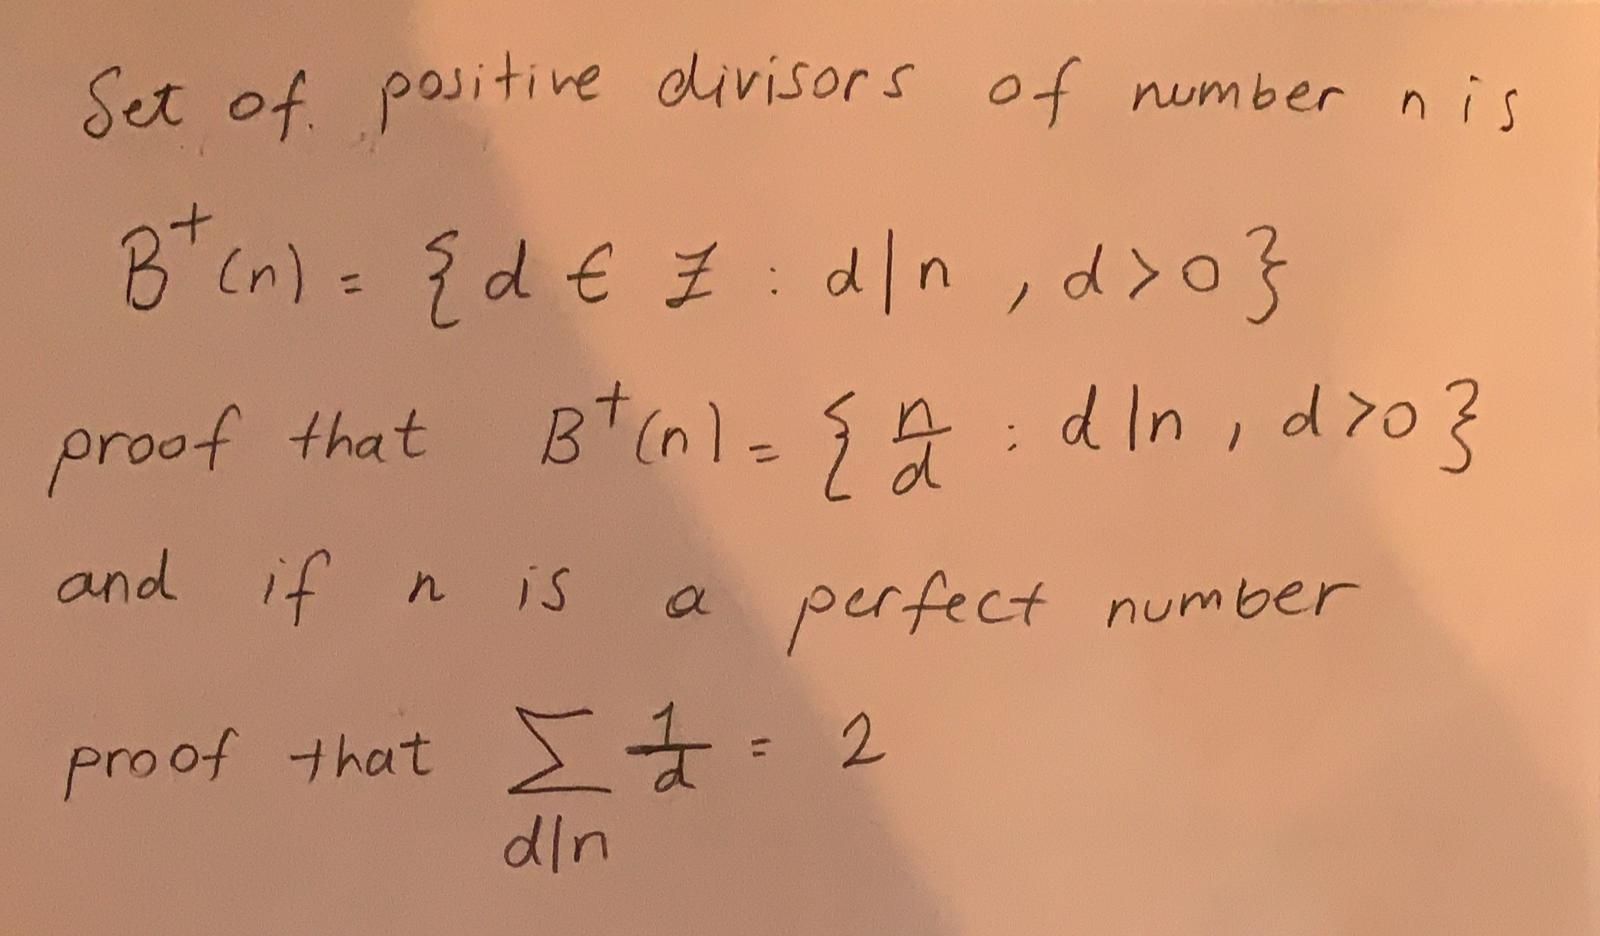 Set of positive divisors of number n is
B⁺(n) = {d ∈ ℤ : d|n , d>0}
proof that B⁺(n) = {n/d : d|n , d>0}
and if n is a perfect number
proof that ∑_{d|n} 1/d = 2